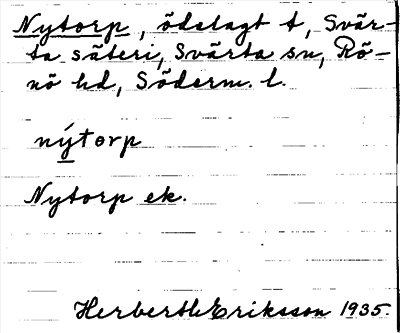 Nytorp, ödelagt t, Svär-
ta säteri, Svärta sn, Rö-
nö hd, Söderm. l.
nýtorp
Nytorp ek.
Herbert Eriksson 1935.